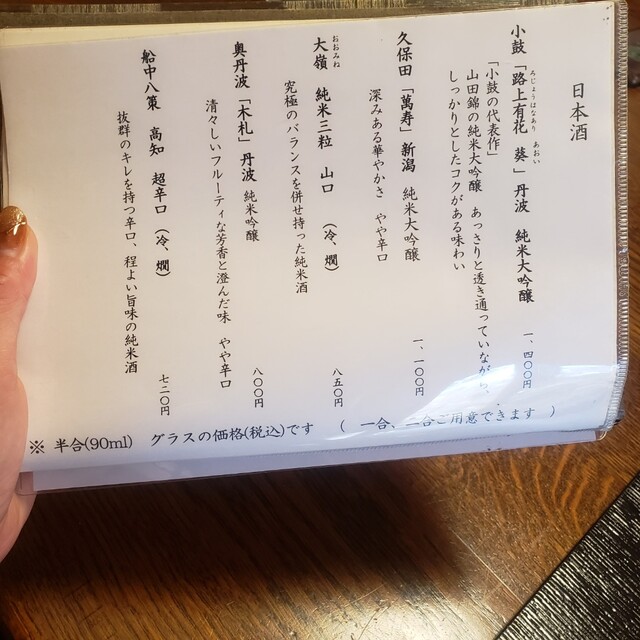 日本酒
ろじょうはなあり あおい
小鼓「路上有花 葵」丹波 純米大吟醸 一、四〇〇円
「小鼓の代表作」
山田錦の純米大吟醸 あっさりと透き通っていながら、
しっかりとしたコクがある味わい
久保田「萬寿」新潟 純米大吟醸 一、一〇〇円
深みある華やかさ やや辛口
おおみね
大嶺 純米三粒 山口 (冷、燗) 八五〇円
究極のバランスを併せ持った純米酒
奥丹波「木札」丹波 純米吟醸 八〇〇円
清々しいフルーティな芳香と澄んだ味 やや辛口
船中八策 高知 超辛口 (冷、燗) 七二〇円
抜群のキレを持つ辛口、程よい旨味の純米酒
※ 半合(90ml) グラスの価格(税込)です ( 一合、二合ご用意できます )